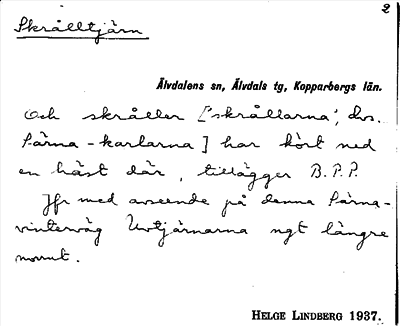 2
Skrålltjärn
Älvdalens sn, Älvdals tg, Kopparbergs län.
Och skråller ['skrållarna', dvs.
Särna-karlarna] har kört ned
en häst där, tillägger B.P.P.
Jfr med avseende på denna Särna-
vinterväg Urtjärnarna ngt längre
norrut.
HELGE LINDBERG 1937.